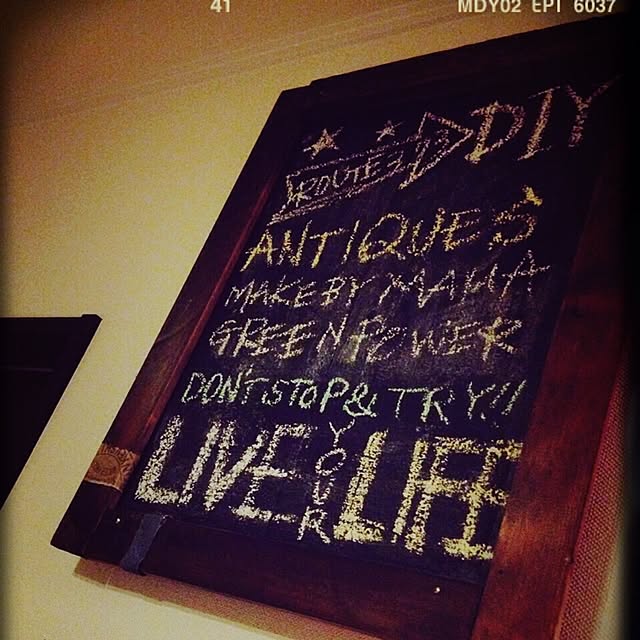 41 MDY02 EPT 6037
DIY
ANTIQUES
MAKE BY MAHA
GREEN POWER
DON'T STOP & TRY!!
LIVE YOUR LIFE